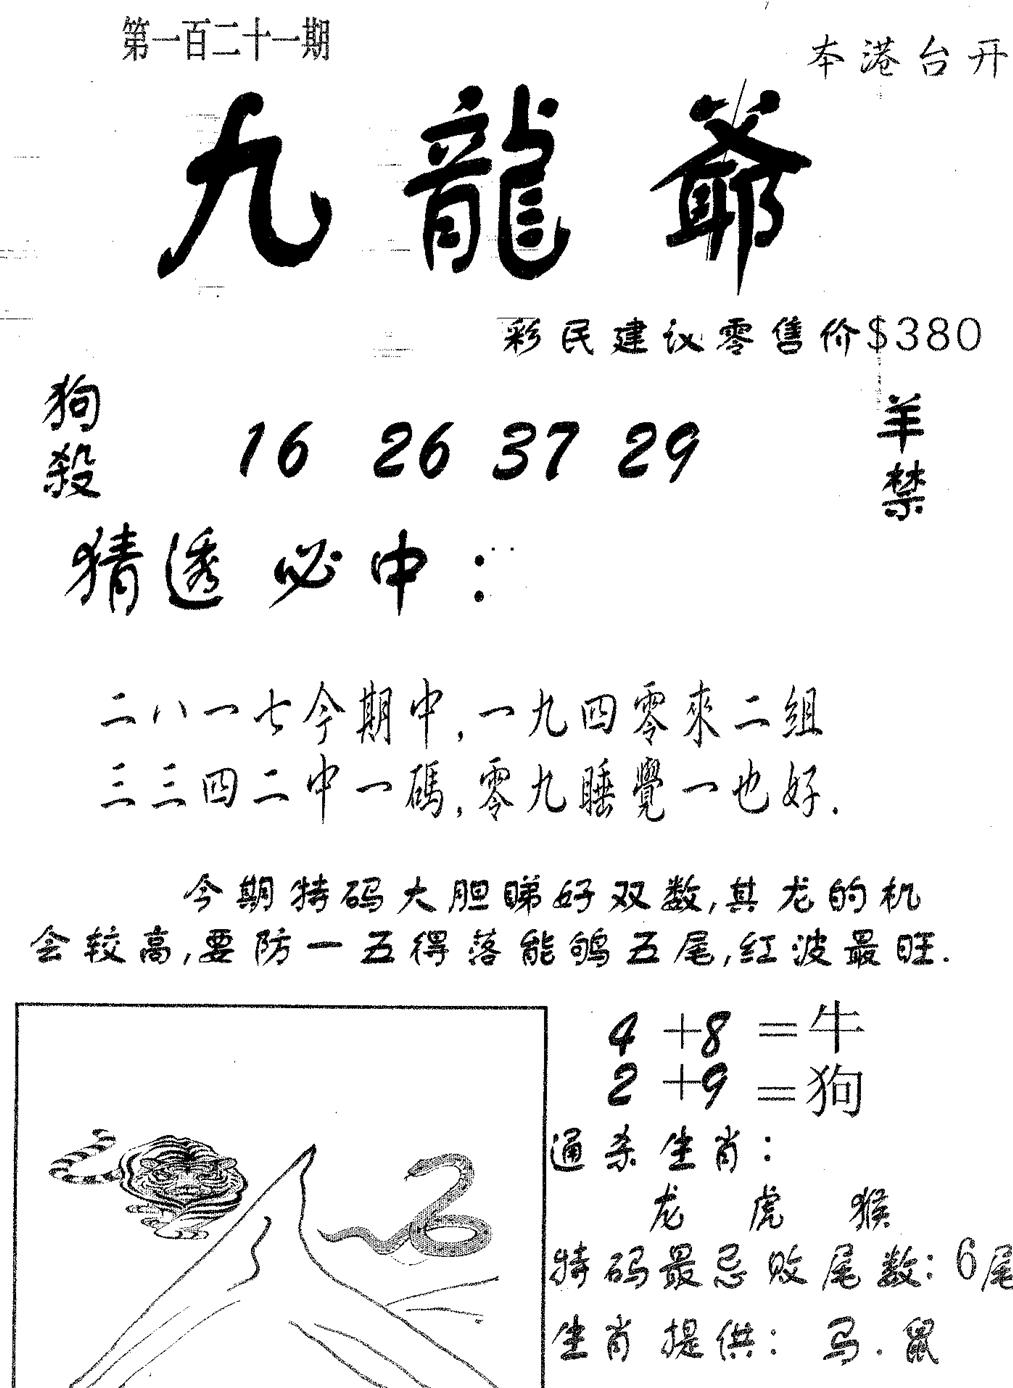 第一百二十一期
本港台开
九龍爺
彩民建议零售价$380
狗殺
16 26 37 29
羊禁
猜透必中：
二八一七今期中,一九四零來二组
三三四二中一碼,零九睡覺一也好.
今期特码大胆睇好双数,其龙的机
会较高,要防一五得落能鸲五尾,红波最旺.
4+8=牛
2+9=狗
通杀生肖：
龙 虎 猴
特码最忌败尾数：6尾
生肖提供：马.鼠